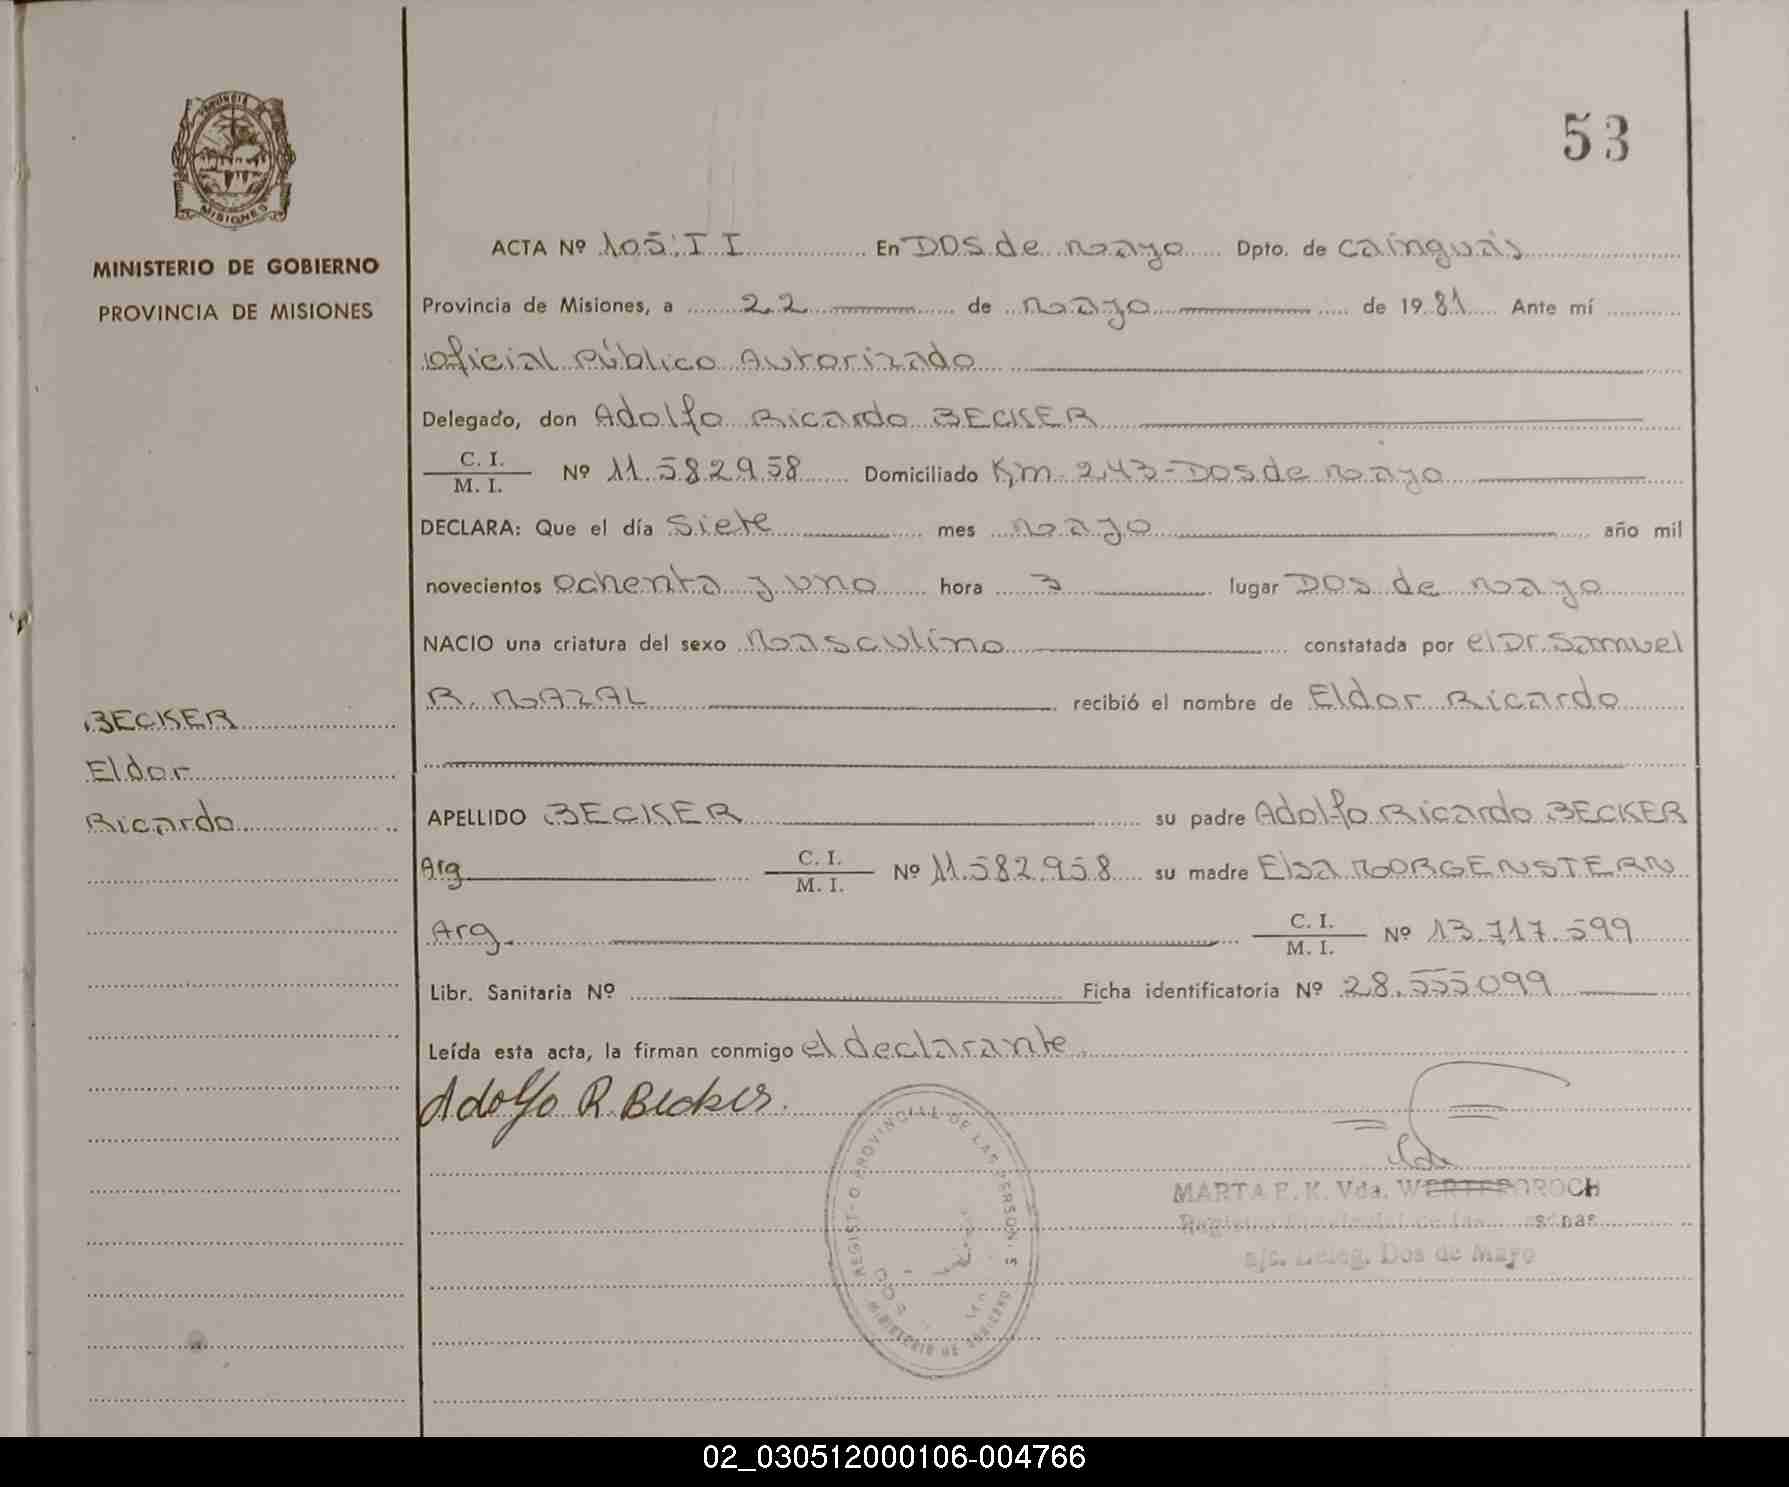 PROVINCIA
MISIONES
MINISTERIO DE GOBIERNO
PROVINCIA DE MISIONES
BECKER
Eldor
Ricardo
53
ACTA Nº 105:II En Dos de mayo Dpto. de cainguás
Provincia de Misiones, a 22 de mayo de 1981 Ante mí
oficial Público Autorizado
Delegado, don Adolfo Ricardo BECKER
C. I.
M. I. Nº 11.582.958 Domiciliado Km. 243-Dos de mayo
DECLARA: Que el día siete mes mayo año mil
novecientos ochenta y uno hora 3 lugar Dos de mayo
NACIO una criatura del sexo masculino constatada por el Dr. Samuel
R. MAZAL recibió el nombre de Eldor Ricardo
APELLIDO BECKER su padre Adolfo Ricardo BECKER
Arg C. I.
M. I. Nº 11.582.958 su madre Elsa MORGENSTERN
Arg. C. I.
M. I. Nº 13.717.599
Libr. Sanitaria Nº Ficha identificatoria Nº 28.555099
Leída esta acta, la firman conmigo el declarante.
Adolfo R. Becker.
PROVINCIAL DE LAS PERSONAS
MINISTERIO DE GOBIERNO
MARTA E. K. Vda.
Deleg. Dos de Mayo
02_030512000106-004766